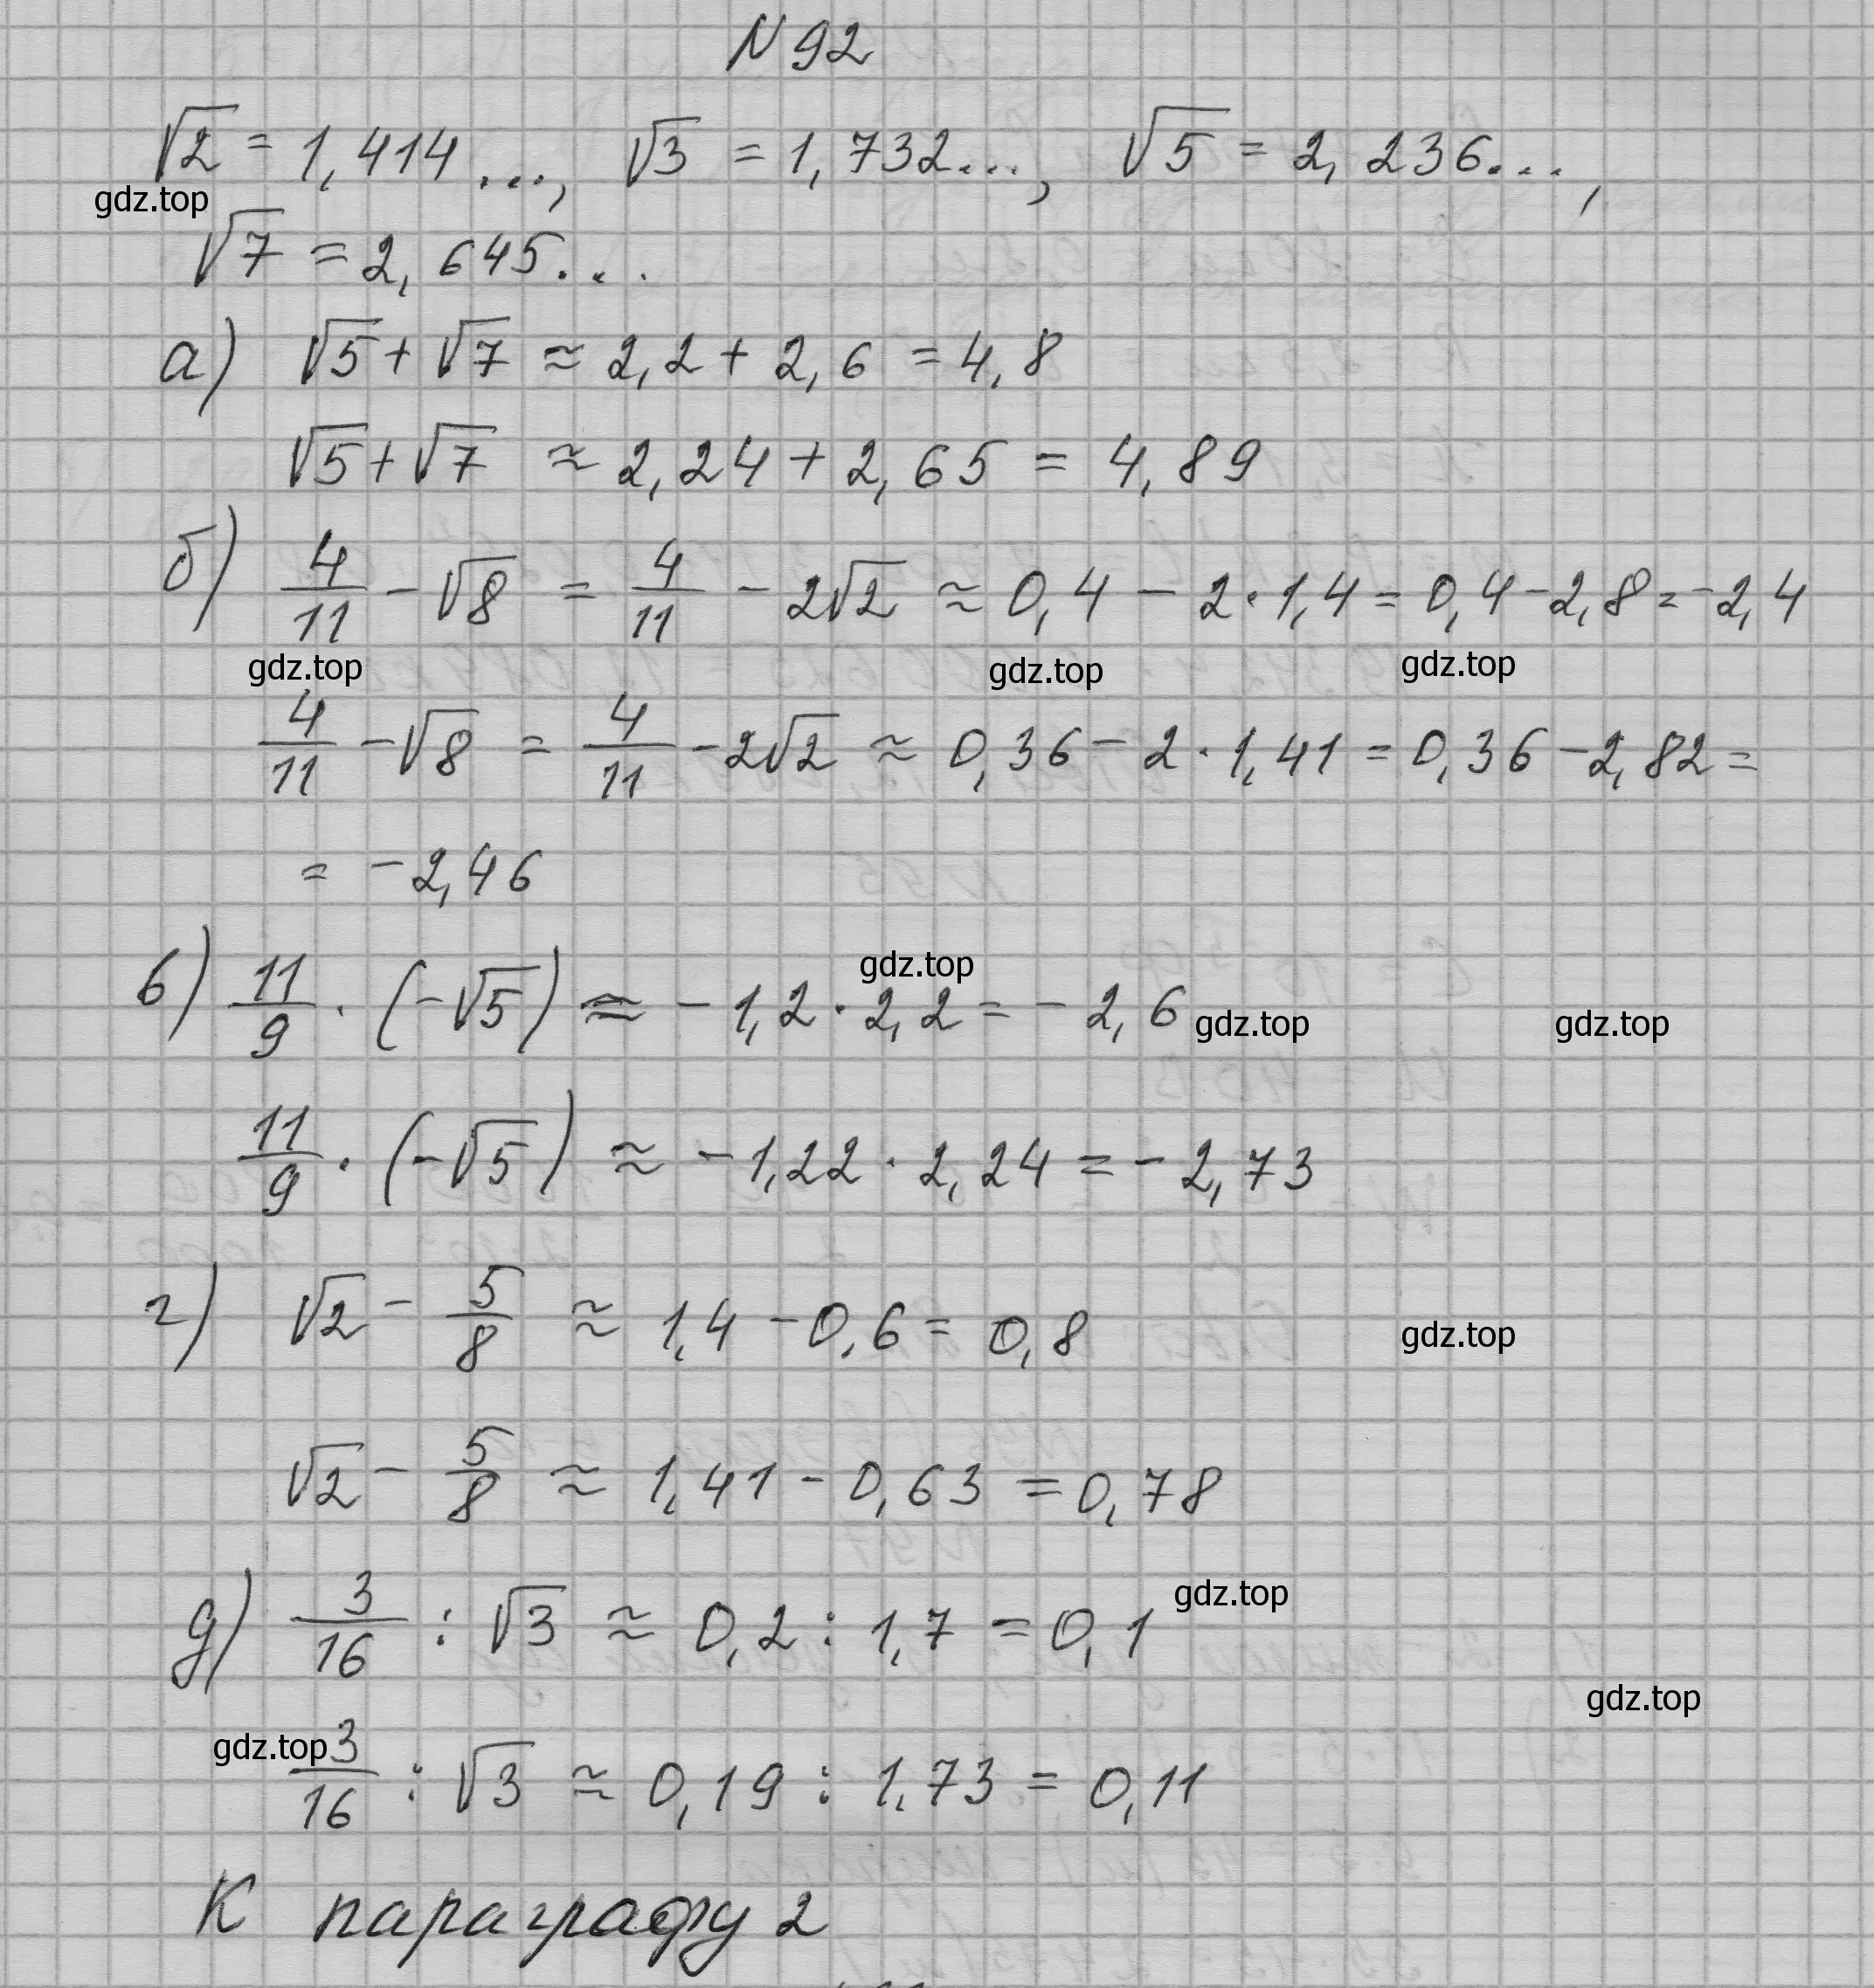 N 92
√2 = 1,414..., √3 = 1,732..., √5 = 2,236...,
gdz.top
√7 = 2,645...
а) √5 + √7 ≈ 2,2 + 2,6 = 4,8
√5 + √7 ≈ 2,24 + 2,65 = 4,89
б) 4/11 - √8 = 4/11 - 2√2 ≈ 0,4 - 2·1,4 = 0,4 - 2,8 = -2,4
gdz.top gdz.top gdz.top
4/11 - √8 = 4/11 - 2√2 ≈ 0,36 - 2·1,41 = 0,36 - 2,82 =
= -2,46
gdz.top
в) 11/9 · (-√5) ≈ -1,2·2,2 = -2,6
gdz.top gdz.top
11/9 · (-√5) ≈ -1,22·2,24 = -2,73
г) √2 - 5/8 ≈ 1,4 - 0,6 = 0,8
gdz.top
√2 - 5/8 ≈ 1,41 - 0,63 = 0,78
gdz.top
д) 3/16 : √3 ≈ 0,2 : 1,7 = 0,1
gdz.top
gdz.top
3/16 : √3 ≈ 0,19 : 1,73 = 0,11
К параграфу 2